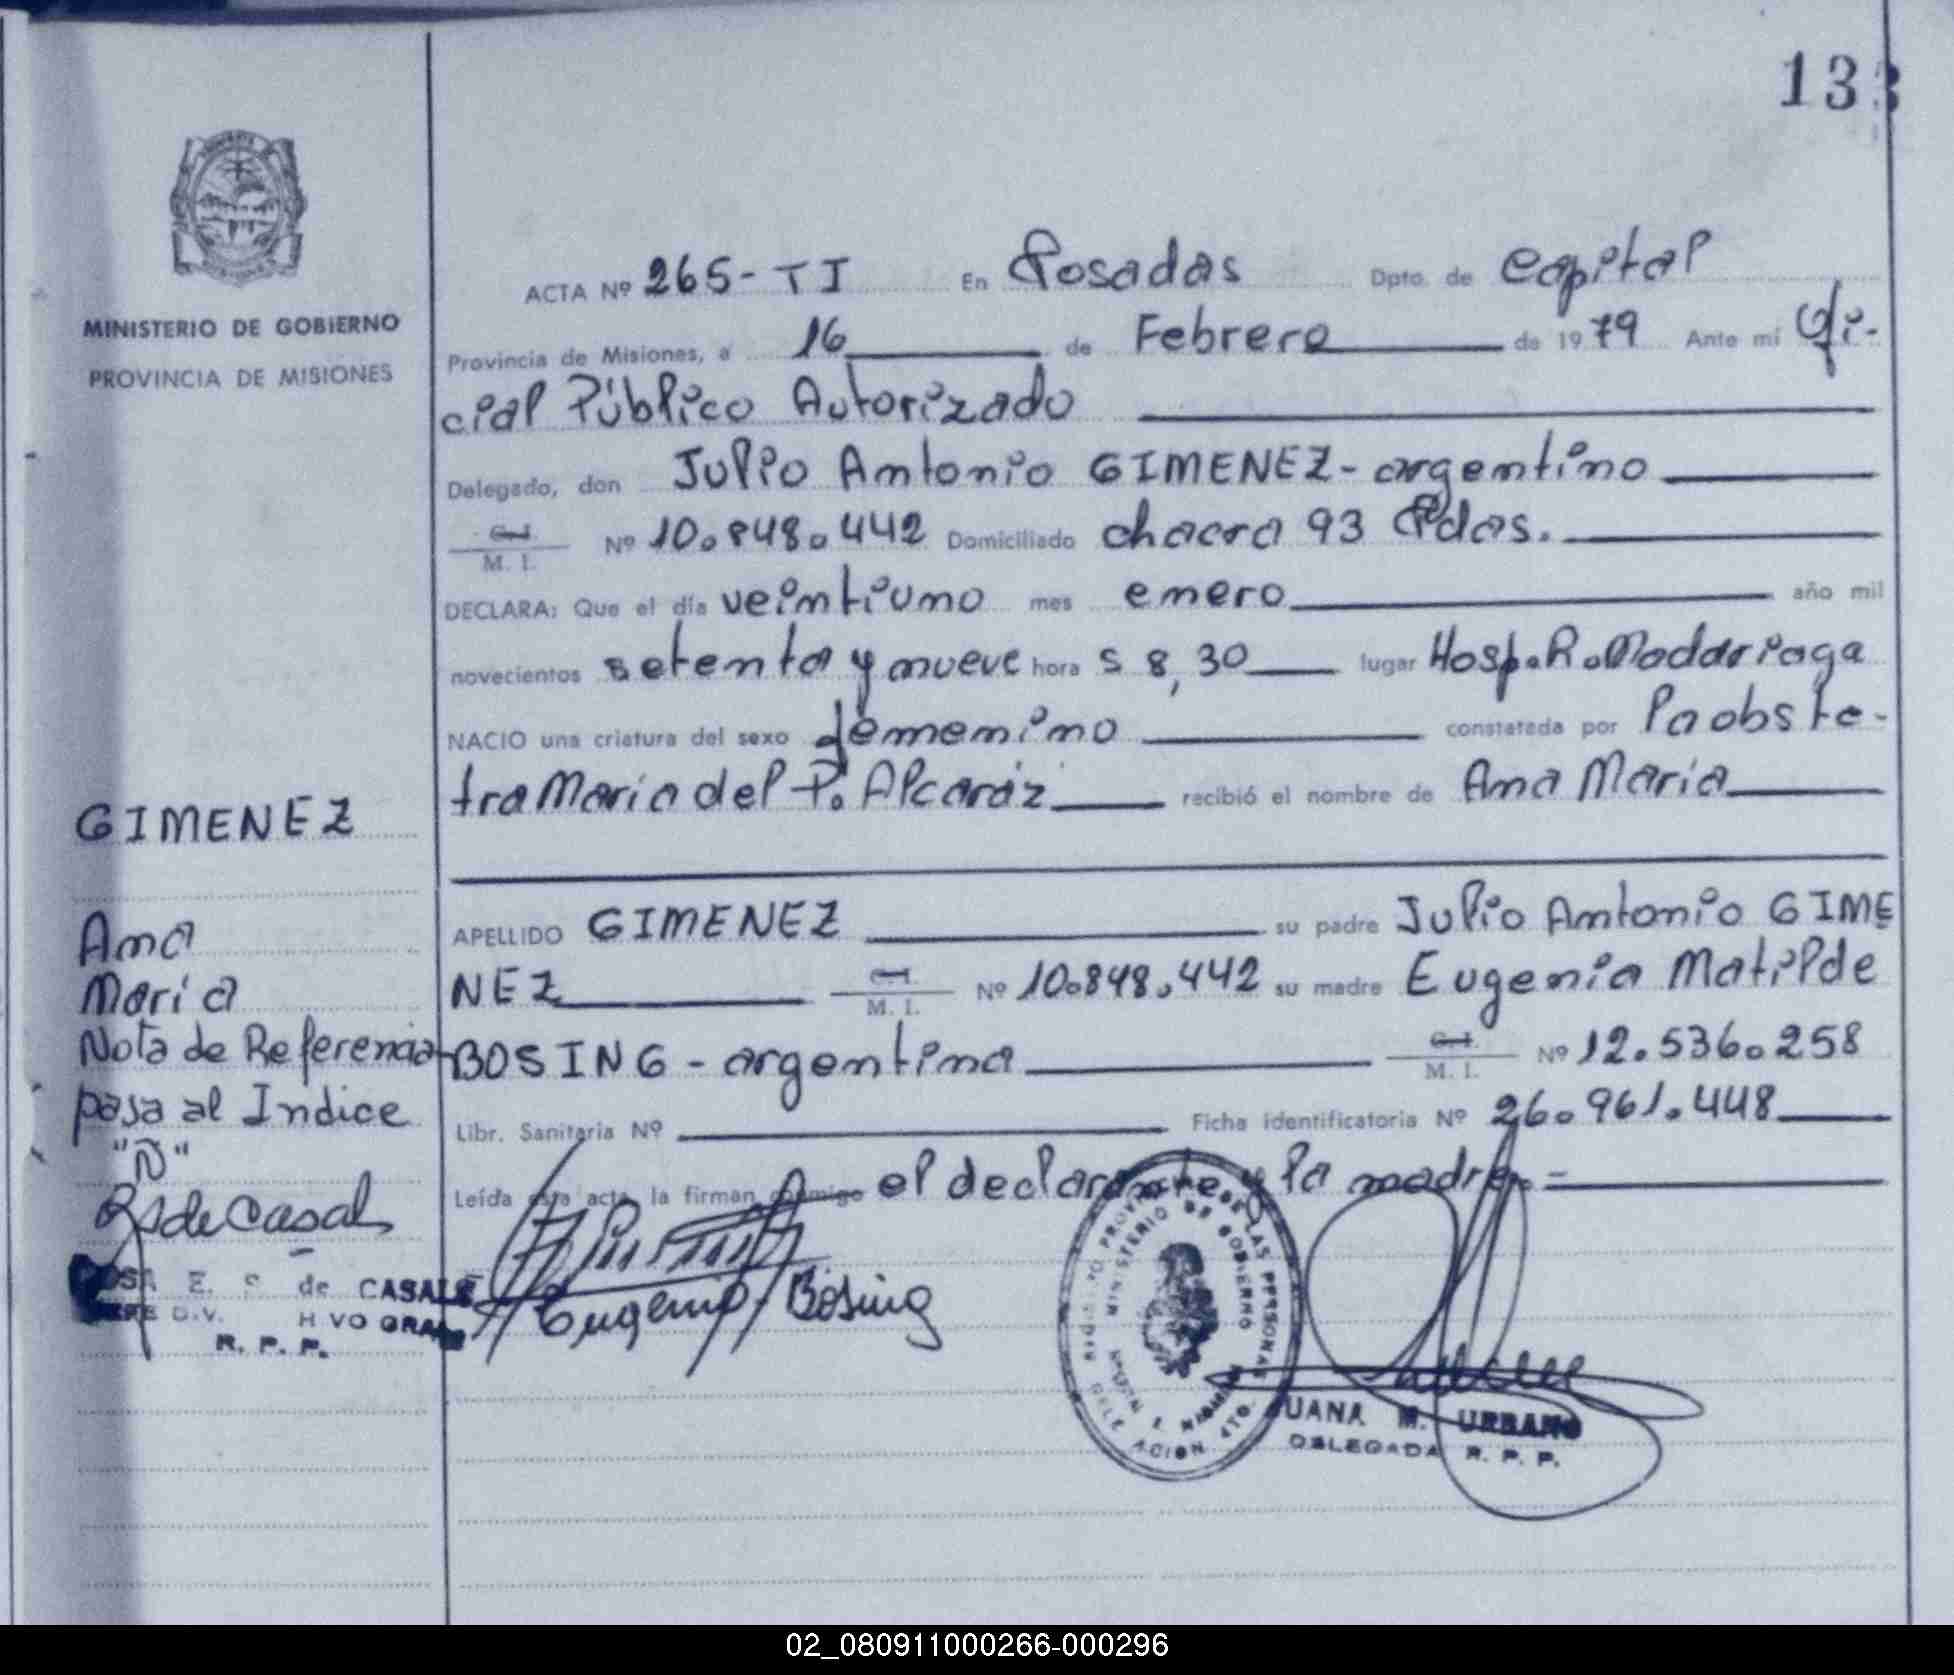 133
MINISTERIO DE GOBIERNO
PROVINCIA DE MISIONES
ACTA Nº 265-TI En Posadas Dpto. de Capital
Provincia de Misiones, a 16 de Febrero de 1979 Ante mí Ofi-
cial Público Autorizado
Delegado, don Julio Antonio GIMENEZ- argentino
C.I. M. I. Nº 10.848.442 Domiciliado chacra 93 Pdas.
DECLARA: Que el día veintiuno mes enero año mil
novecientos setenta y nueve hora s 8,30 lugar Hosp. R. Madariaga
NACIO una criatura del sexo femenino constatada por la obste-
tra María del P. Alcaráz recibió el nombre de Ana María
APELLIDO GIMENEZ su padre Julio Antonio GIME
NEZ C.I. M. I. Nº 10.848.442 su madre Eugenia Matilde
BOSING - argentina C.I. M. I. Nº 12.536.258
Libr. Sanitaria Nº Ficha identificatoria Nº 26.961.448
Leída esta acta, la firman conmigo el declarante y la madre.=
Eugenia Bösing
JUANA M. URBANO
DELEGADA R. P. P.
GIMENEZ
Ana
María
Nota de Referencia
pasa al Indice
"Ñ"
de Casal
E. S. de CASALE
R. P. P.
MINISTERIO DE GOBIERNO
02_080911000266-000296